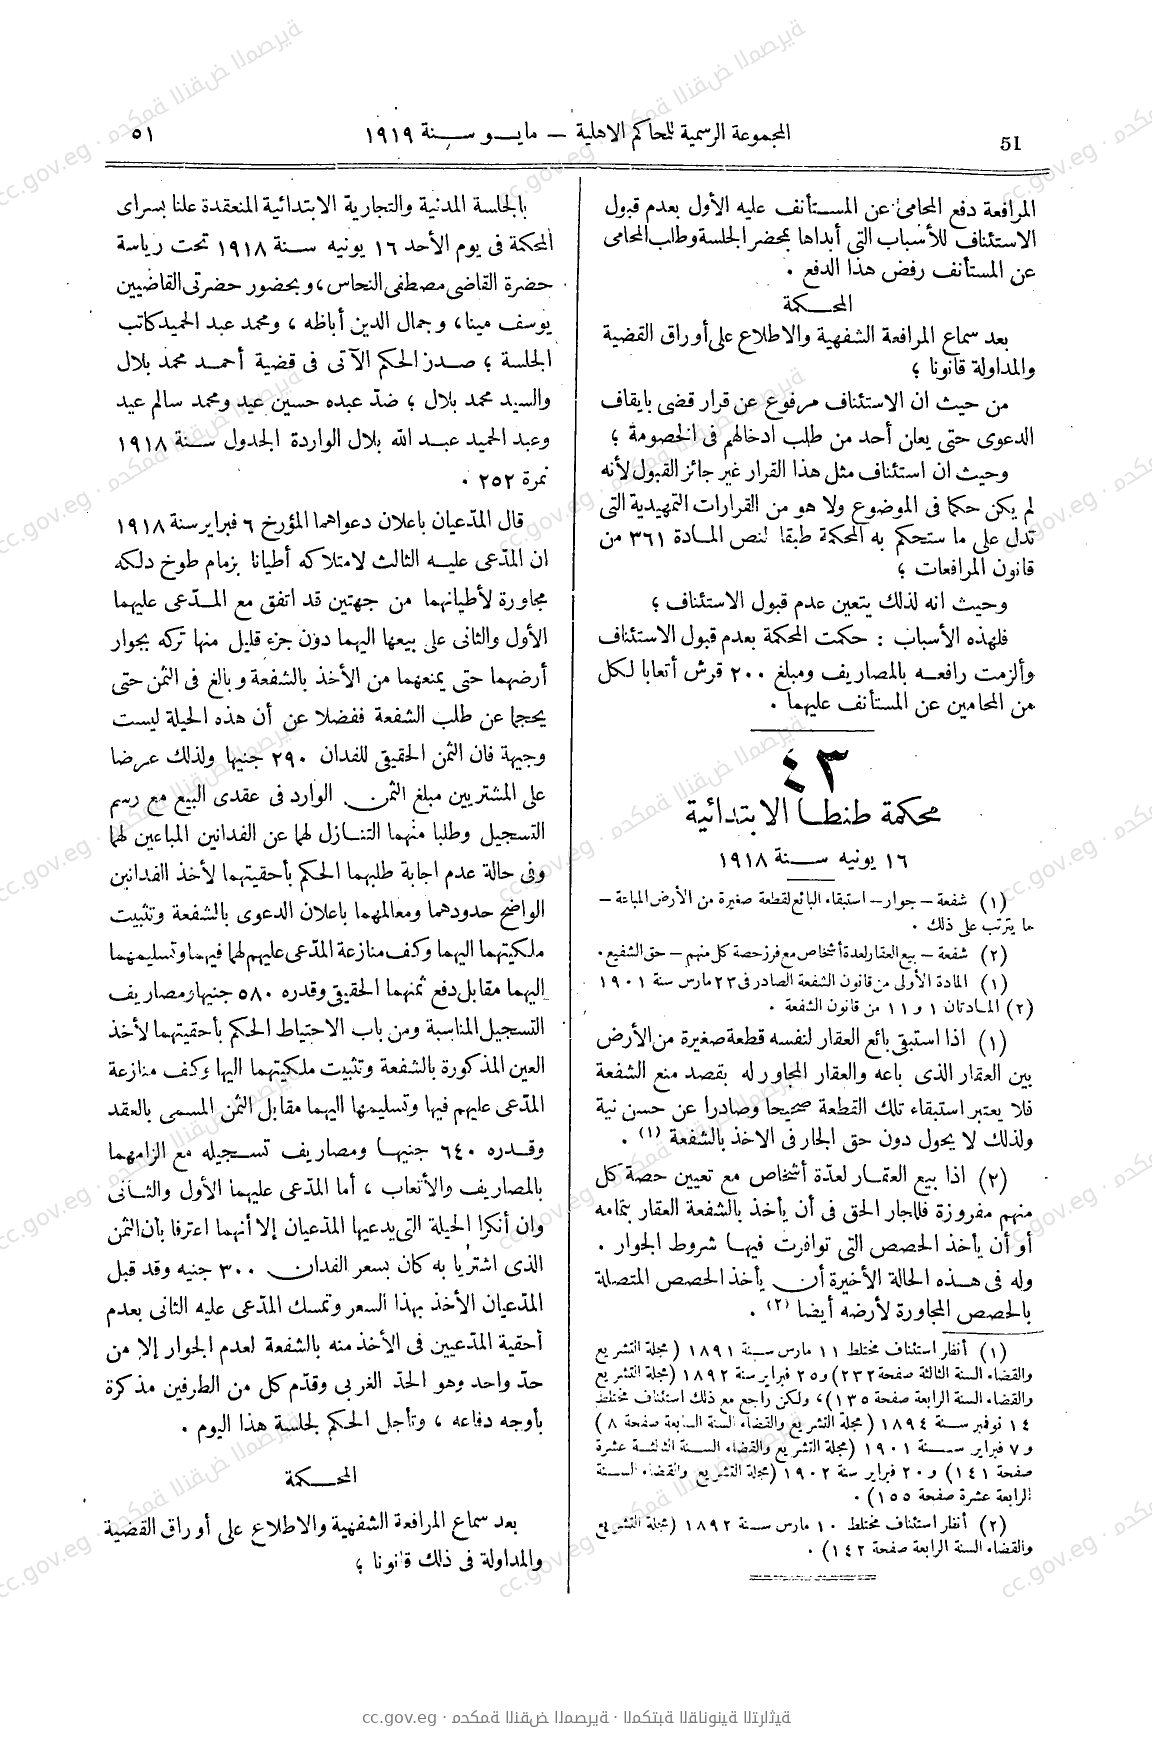 51
المجموعة الرسمية للمحاكم الاهلية – مايو سنة ١٩١٩
٥١
المرافعة دفع المحامى عن المستأنف عليه الأول بعدم قبول
الاستئناف للأسباب التى أبداها بمحضر الجلسة وطلب المحامى
عن المستأنف رفض هذا الدفع .
المحكمة
بعد سماع المرافعة الشفهية والاطلاع على أوراق القضية
والمداولة قانونا ؛
من حيث ان الاستئناف مرفوع عن قرار قضى بايقاف
الدعوى حتى يعلن أحد من طلب ادخالهم فى الخصومة ؛
وحيث ان استئناف مثل هذا القرار غير جائز القبول لأنه
لم يكن حكما فى الموضوع ولا هو من القرارات التمهيدية التى
تدل على ما ستحكم به المحكمة طبقا لنص المادة ٣٦١ من
قانون المرافعات ؛
وحيث انه لذلك يتعين عدم قبول الاستئناف ؛
فلهذه الأسباب : حكمت المحكمة بعدم قبول الاستئناف
وألزمت رافعه بالمصاريف ومبلغ ٢٠٠ قرش أتعابا لكل
من المحامين عن المستأنف عليهما .
٤٣
محكمة طنطا الابتدائية
١٦ يونيه سنة ١٩١٨
(١) شفعة – جوار – استبقاء البائع لقطعة صغيرة من الأرض المباعة –
ما يترتب على ذلك .
(٢) شفعة – بيع العقار لعدة أشخاص مع فرز حصة كل منهم – حق الشفيع .
(١) المادة الأولى من قانون الشفعة الصادر فى ٢٣ مارس سنة ١٩٠١
(٢) المادتان ١ و ١١ من قانون الشفعة .
(١) اذا استبقى بائع العقار لنفسه قطعة صغيرة من الأرض
بين العقار الذى باعه والعقار المجاور له بقصد منع الشفعة
فلا يعتبر استبقاء تلك القطعة صحيحا وصادرا عن حسن نية
ولذلك لا يحول دون حق الجار فى الاخذ بالشفعة (١) .
(٢) اذا بيع العقار لعدّة أشخاص مع تعيين حصة كل
منهم مفروزة فللجار الحق فى أن يأخذ بالشفعة العقار بتمامه
أو أن يأخذ الحصص التى توافرت فيها شروط الجوار .
وله فى هذه الحالة الأخيرة أن يأخذ الحصص المتصلة
بالحصص المجاورة لأرضه أيضا (٢) .
(١) أنظر استئناف مختلط ١١ مارس سنة ١٨٩١ (مجلة التشريع
والقضاء السنة الثالثة صفحة ٢٣٢) و٢٥ فبراير سنة ١٨٩٢ (مجلة التشريع
والقضاء السنة الرابعة صفحة ١٣٥)، ولكن راجع مع ذلك استئناف مختلط
١٤ نوفمبر سنة ١٨٩٤ (مجلة التشريع والقضاء السنة السابعة صفحة ٨)
و٧ فبراير سنة ١٩٠١ (مجلة التشريع والقضاء السنة الثالثة عشرة
صفحة ١٤١) و٢٠ فبراير سنة ١٩٠٢ (مجلة التشريع والقضاء السنة
الرابعة عشرة صفحة ١٥٥) .
(٢) أنظر استئناف مختلط ١٠ مارس سنة ١٨٩٢ (مجلة التشريع
والقضاء السنة الرابعة صفحة ١٤٢) .
بالجلسة المدنية والتجارية الابتدائية المنعقدة علنا بسراى
المحكمة فى يوم الأحد ١٦ يونيه سنة ١٩١٨ تحت رياسة
حضرة القاضى مصطفى النحاس، وبحضور حضرتى القاضيين
يوسف مينا، وجمال الدين أباظه ، ومحمد عبد الحميد كاتب
الجلسة ؛ صدر الحكم الآتى فى قضية أحمد محمد بلال
والسيد محمد بلال ؛ ضدّ عبده حسين عيد ومحمد سالم عيد
وعبد الحميد عبد الله بلال الواردة الجدول سنة ١٩١٨
نمرة ٢٥٢ .
قال المدّعيان باعلان دعواهما المؤرخ ٦ فبراير سنة ١٩١٨
ان المدّعى عليه الثالث لامتلاكه أطيانا بزمام طوخ دلكه
مجاورة لأطيانهما من جهتين قد اتفق مع المدّعى عليهما
الأول والثانى على بيعها اليهما دون جزء قليل منها تركه بجوار
أرضهما حتى يمنعهما من الأخذ بالشفعة وبالغ فى الثمن حتى
يحجما عن طلب الشفعة ففضلا عن أن هذه الحيلة ليست
وجيهة فان الثمن الحقيقى للفدان ٢٩٠ جنيها ولذلك عرضا
على المشتريين مبلغ الثمن الوارد فى عقدى البيع مع رسم
التسجيل وطلبا منهما التنازل لهما عن الفدانين المباعين لهما
وفى حالة عدم اجابة طلبهما الحكم بأحقيتهما لأخذ الفدانين
الواضح حدودهما ومعالمهما باعلان الدعوى بالشفعة وتثبيت
ملكيتهما اليهما وكف منازعة المدّعى عليهم لهما فيهما وتسليمهما
اليهما مقابل دفع ثمنهما الحقيقى وقدره ٥٨٠ جنيها ومصاريف
التسجيل المناسبة ومن باب الاحتياط الحكم بأحقيتهما لأخذ
العين المذكورة بالشفعة وتثبيت ملكيتهما اليها وكف منازعة
المدّعى عليهم فيها وتسليمها اليهما مقابل الثمن المسمى بالعقد
وقدره ٦٤٠ جنيها ومصاريف تسجيله مع الزامهما
بالمصاريف والأتعاب ، أما المدّعى عليهما الأول والثانى
وان أنكرا الحيلة التى يدعيها المدّعيان إلا أنهما اعترفا بأن الثمن
الذى اشتريا به كان بسعر الفدان ٣٠٠ جنيه وقد قبل
المدّعيان الأخذ بهذا السعر وتمسك المدّعى عليه الثانى بعدم
أحقية المدّعيين فى الأخذ منه بالشفعة لعدم الجوار إلا من
حدّ واحد وهو الحدّ الغربى وقدّم كل من الطرفين مذكرة
بأوجه دفاعه ، وتأجل الحكم لجلسة هذا اليوم .
المحكمة
بعد سماع المرافعة الشفهية والاطلاع على أوراق القضية
والمداولة فى ذلك قانونا ؛
cc.gov.eg · محكمة النقض المصرية · المكتبة القانونية التراثية